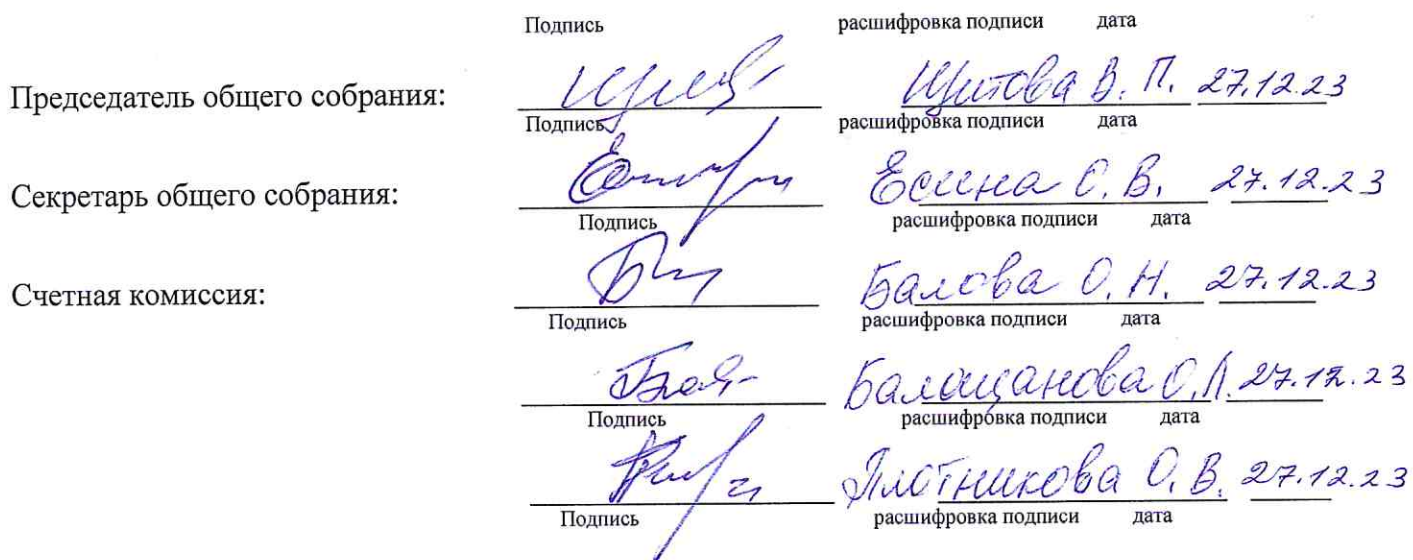 Подпись расшифровка подписи дата
Председатель общего собрания: Щитова В. П. 27.12.23
Подпись расшифровка подписи дата
Секретарь общего собрания: Есина О. В. 27.12.23
Подпись расшифровка подписи дата
Счетная комиссия: Балова О. Н. 27.12.23
Подпись расшифровка подписи дата
О.Л. 27.12.23
Подпись расшифровка подписи дата
Плотникова О. В. 27.12.23
Подпись расшифровка подписи дата